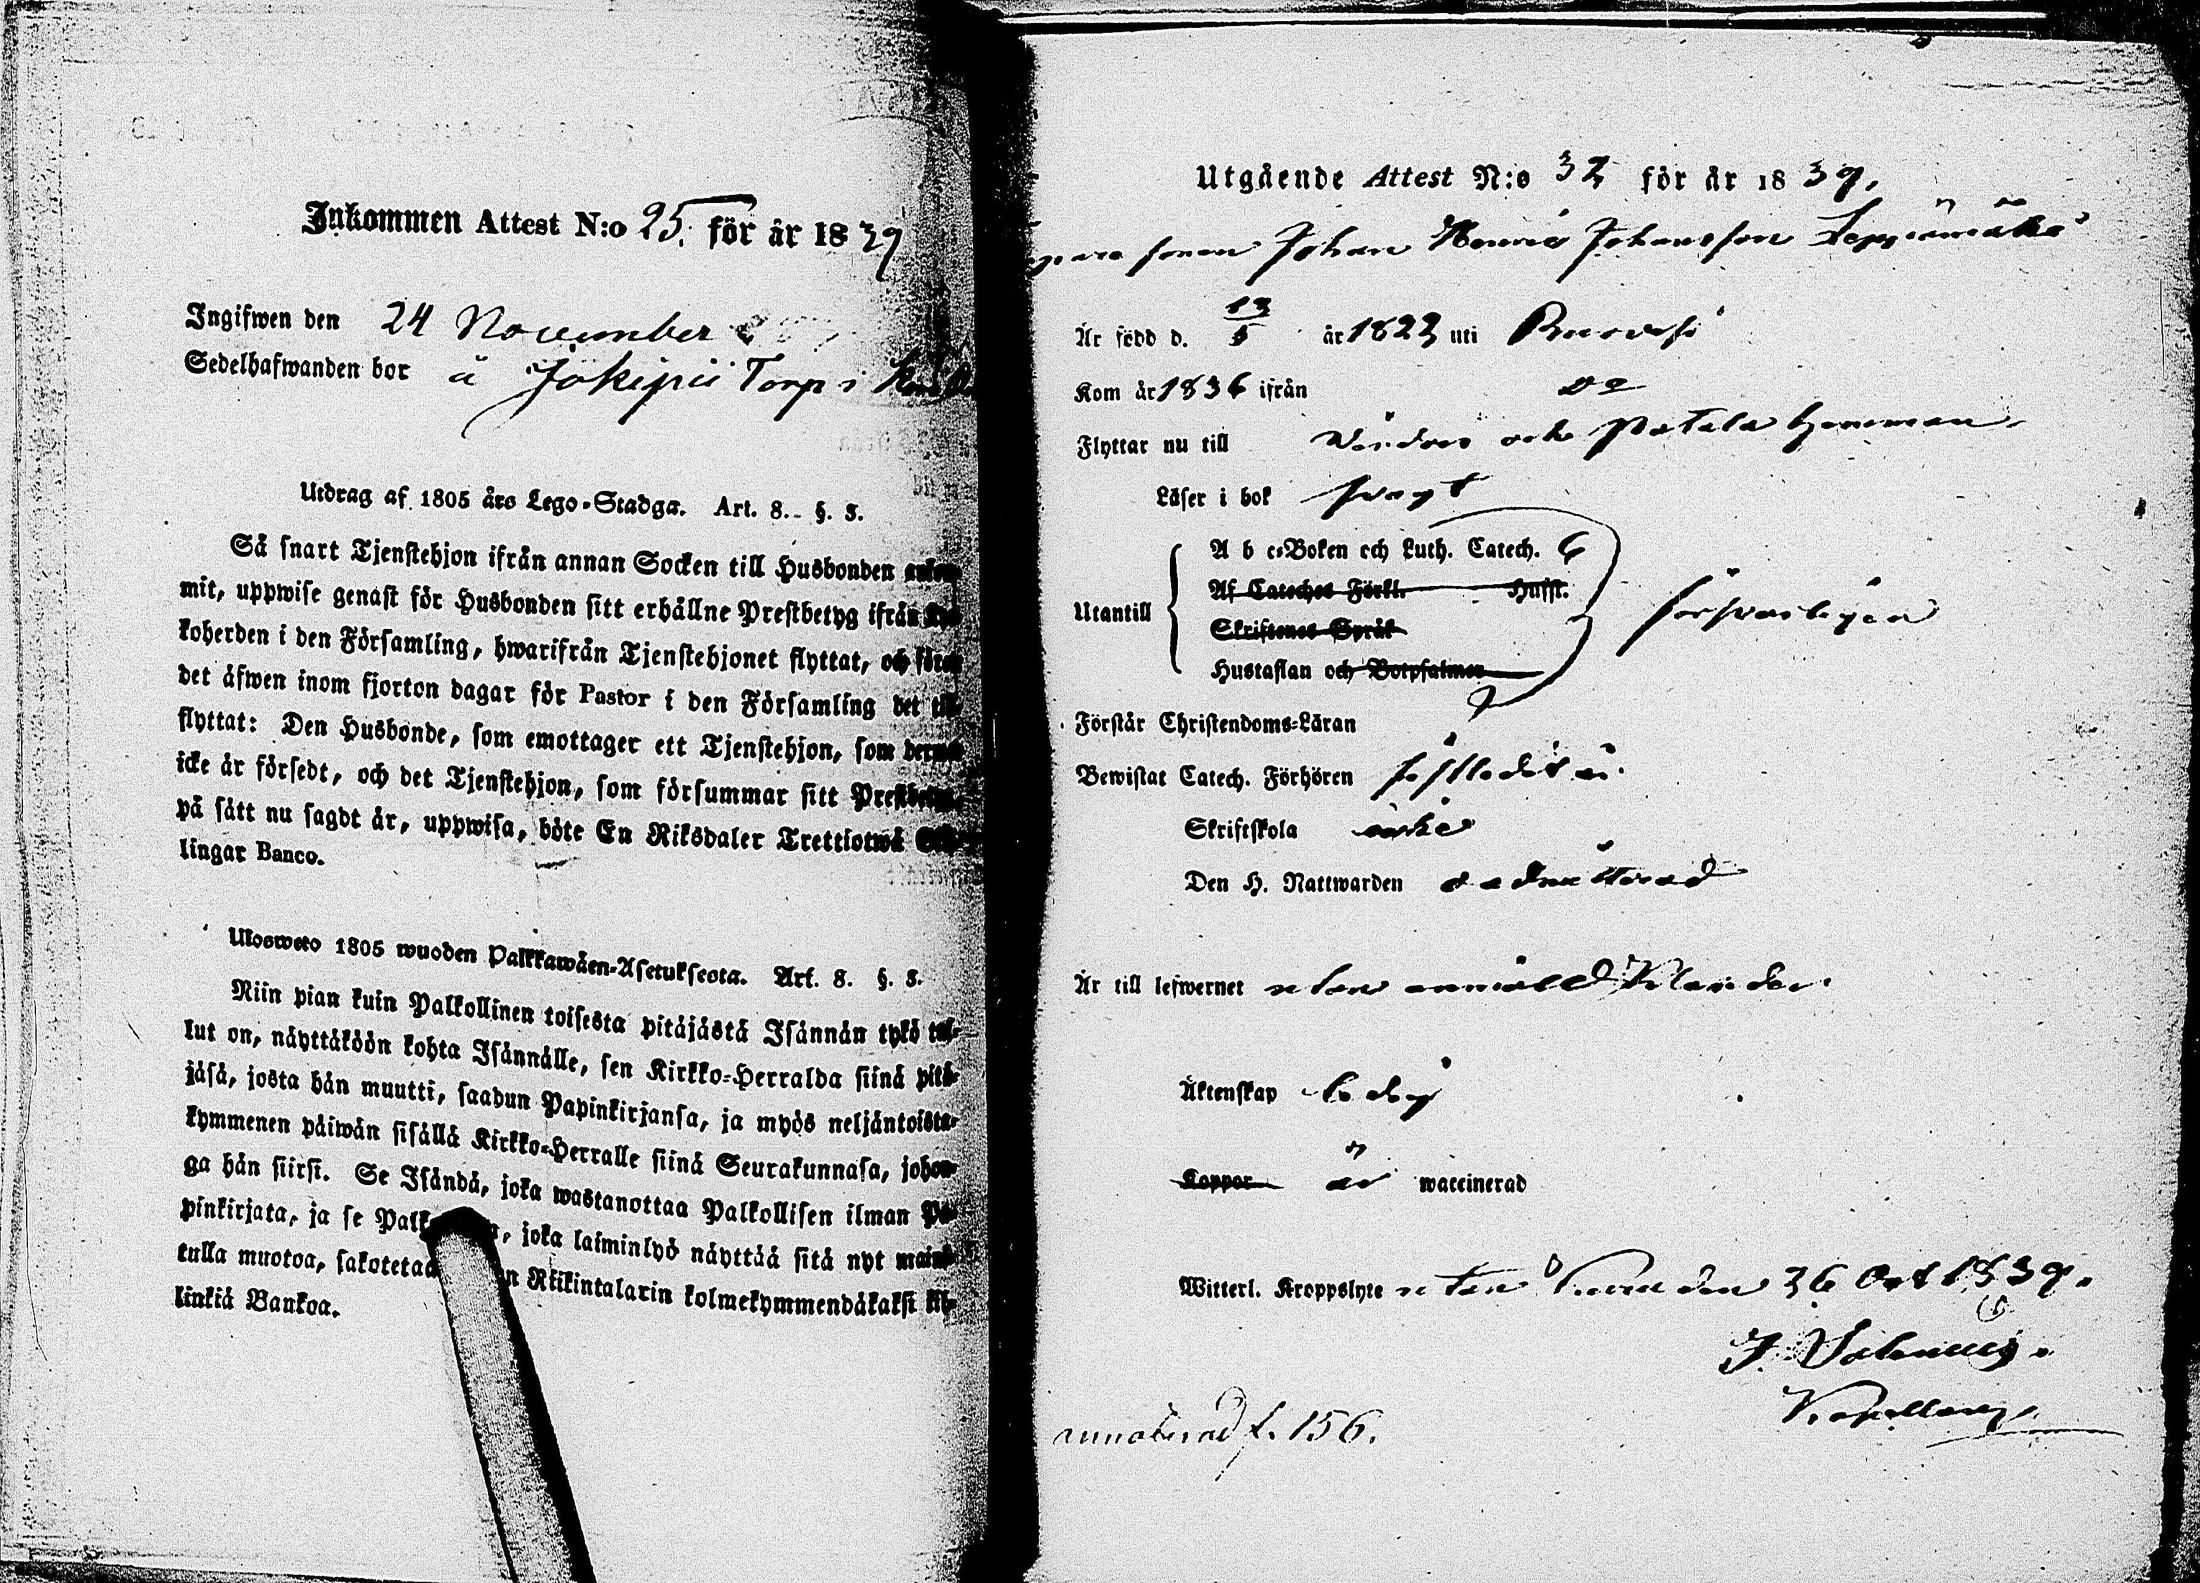 Inkommen Attest N:o 25. för år 1839
Ingifwen den 24 November
Sedelhafwanden bor å Jokipii Torp i
Utdrag af 1805 års Lego-Stadga. Art. 8. §. 3.
Så snart Tjenstehjon ifrån annan Socken till Husbonden
mit, uppwise genast för Husbonden sitt erhållne Prestbetyg ifrån
koherden i den Församling, hwarifrån Tjenstehjonet flyttat, och
det äfwen inom fjorton dagar för Pastor i den Församling det
flyttat: Den Husbonde, som emottager ett Tjenstehjon, som
icke är försedt, och det Tjenstehjon, som försummar sitt
på sätt nu sagdt är, uppwisa, böte En Riksdaler Trettiotwå
lingar Banco.
Ulosweto 1805 wuoden Palkkawäen-Asetuksesta. Art. 8. §. 3.
Niin pian kuin Palkollinen toisesta pitäjästä Isännän tykö tul-
lut on, näyttäköön kohta Isännälle, sen Kirkko-Herralda siinä pitä-
jäsä, josta hän muutti, saadun Papinkirjansa, ja myös neljäntoista-
kymmenen päiwän sisällä Kirkko-Herralle siinä Seurakunnasa, johon-
ga hän siirsi. Se Isändä, joka wastanottaa Palkollisen ilman Pa-
pinkirjata, ja se joka laiminlyö näyttää sitä nyt
tulla muotoa, Riikintalarin kolmekymmendäkaksi
linkiä Bankoa.
Utgående Attest N:o 32 för år 1839.
sonen Johan Henric Johansson Leppämäki
Är född d. 13/5 år 1823 uti Ruovesi
Kom år 1836 ifrån Do
Flyttar nu till Wirdois och Patala hemman
Läser i bok swagt
Utantill
A b c-Boken och Luth. Catech. 6
Af Catechet Förkl. Hufst.
Skriftenes Språk
Hustaflan och Botpsalmer
försvarligen
Förstår Christendoms-Läran
Bewistat Catech. Förhören
Skriftskola icke
Den H. Nattwarden oadmitterad
Är till lefwernet utan anmäld klander.
Äktenskap ledig
Koppor är waccinerad
Witterl. Kroppslyte utan den 26 Oct 1839.
annoterad f. 156.